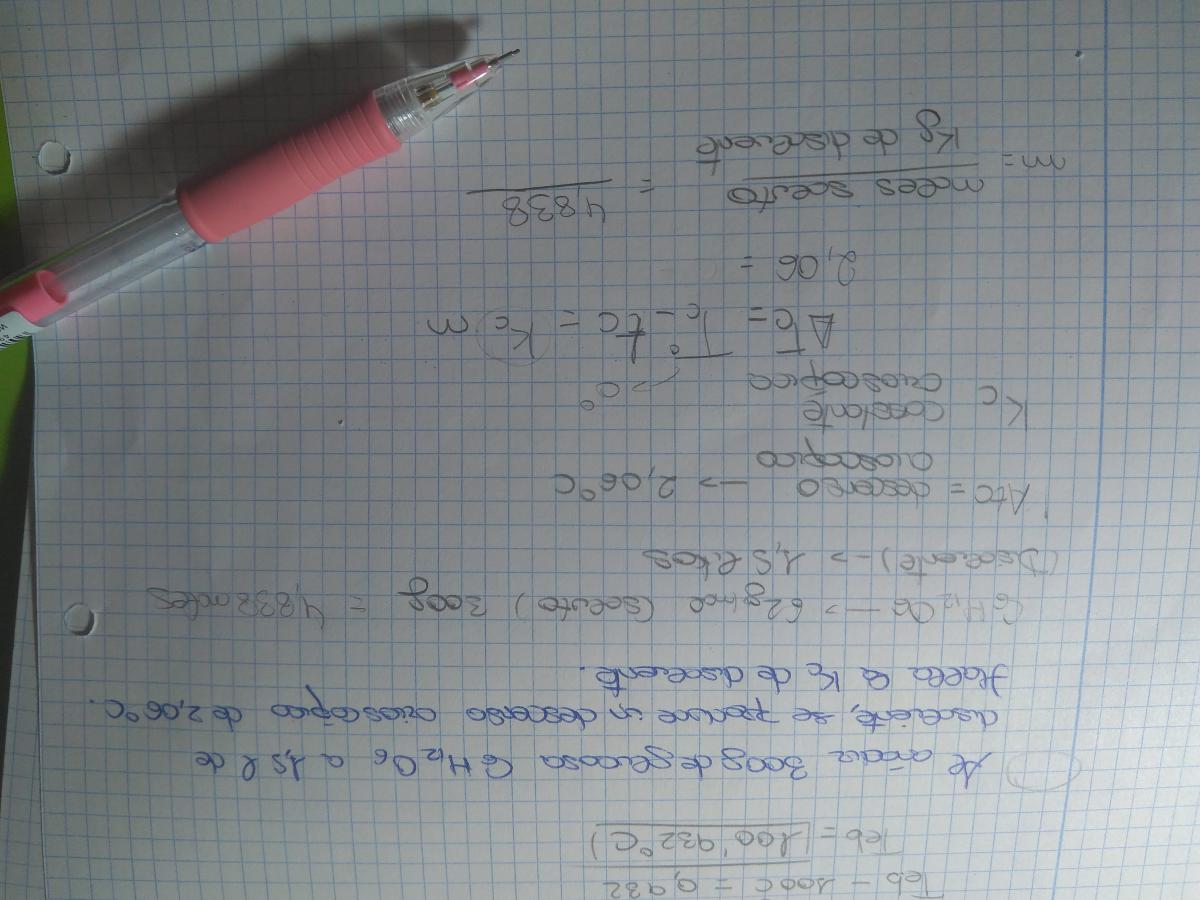 Teb - 100°C = 0,932
Teb = 100,932°C
Al añadir 300g de glucosa C6H12O6 a 1,5 l de
disolvente, se produce un descenso crioscópico de 2,06°C.
Halla la Kc de disolvente.
C6H12O6 -> 62g/mol (soluto) 300g = 4,838 moles
(Disolvente) -> 1,5 litros
Δtc = descenso crioscópico -> 2,06°C
Kc constante crioscópica
-> 0°
ΔTc = T°c - tc = Kc m
2,06 =
m = moles soluto / Kg de disolvente = 4838